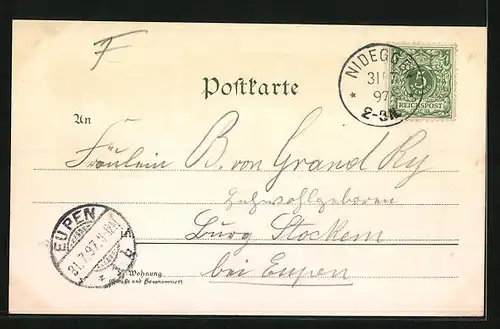 F
Postkarte
NIDEGGEN
31 7
97
2-3N
REICHSPOST
5
An
Fräulein B. von Grand Ry
Hochwohlgeboren
Burg Stockem
bei Eupen
EUPEN
31.7.97. 7-8N
Wohnung
(Straße und Hausnummer)